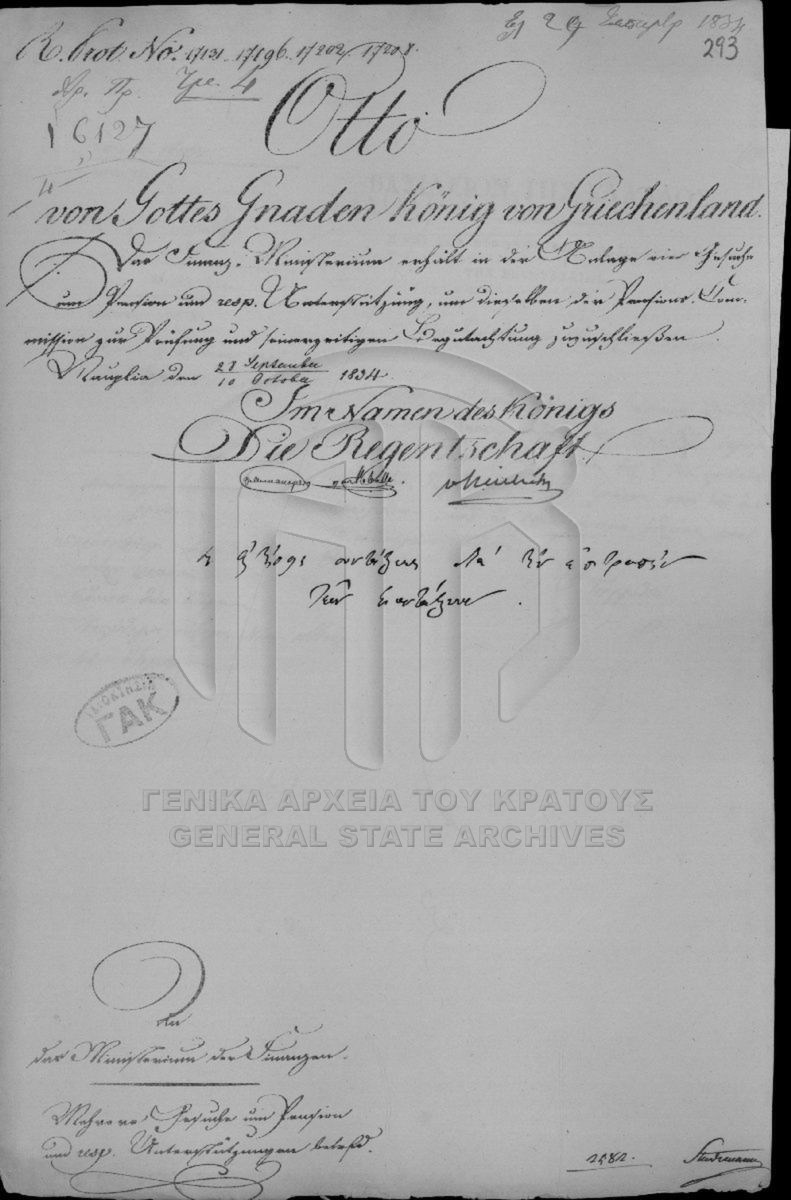 R. Prot. No. 17131. 17196. 17202. 17208.
29 1834
293
Αρ. Πρ.
16127
4
Otto
von Gottes Gnaden König von Griechenland.
Das Finanz-Ministerium erhält in der Anlage vier Gesuche
um Pension und resp. Unterstützung, um dieselben der Pensions-Com-
mission zur Prüfung und seinerzeitigen Begutachtung zuzuschließen.
Nauplia den 28 September / 10 October 1834.
Im Namen des Königs
Die Regentschaft.
ΙΔΙΟΚΤΗΣΙΑ
ΓΑΚ
ΓΕΝΙΚΑ ΑΡΧΕΙΑ ΤΟΥ ΚΡΑΤΟΥΣ
GENERAL STATE ARCHIVES
An
das Ministerium der Finanzen.
Mehrere Gesuche um Pension
und resp. Unterstützungen betrfd.
2582.